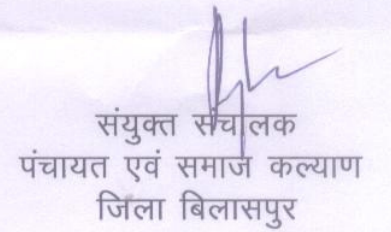 संयुक्त संचालक
पंचायत एवं समाज कल्याण
जिला बिलासपुर